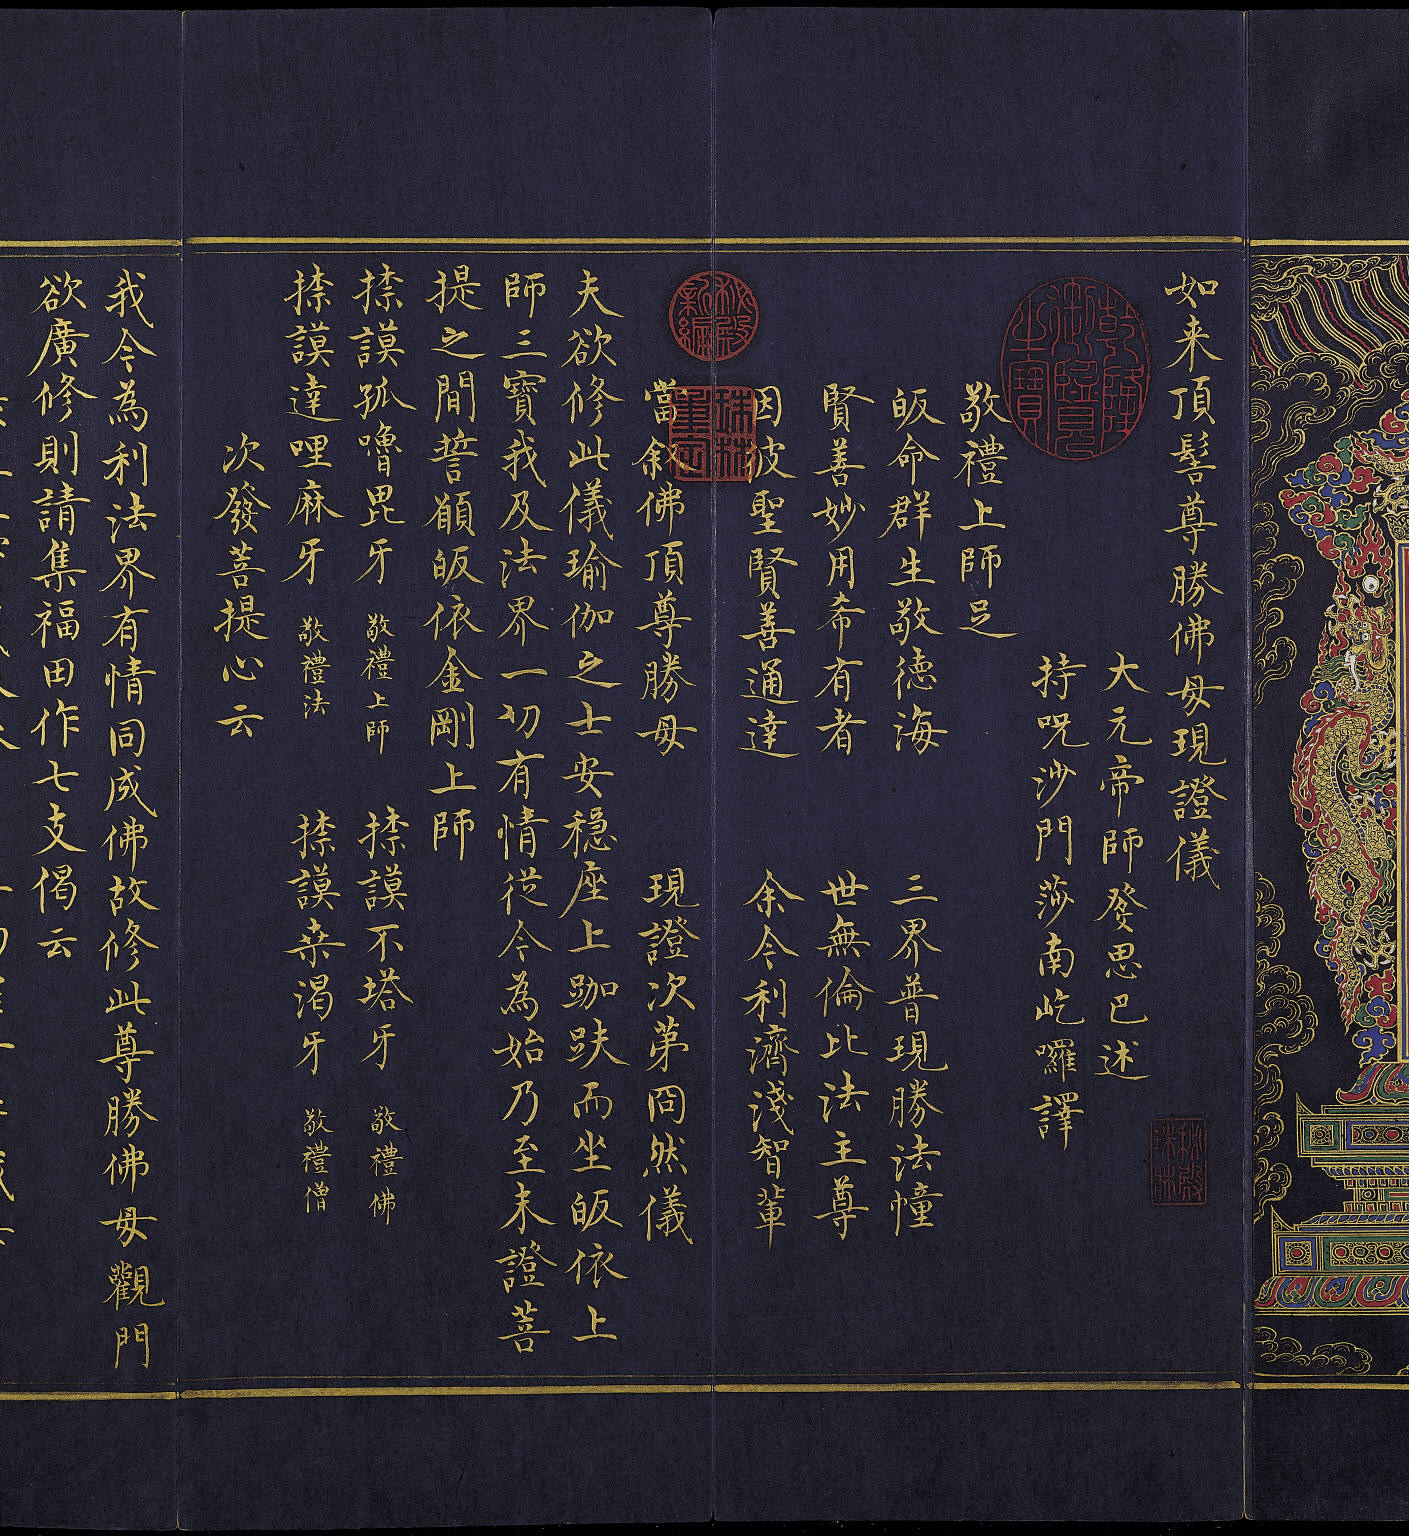 如来頂髻尊勝佛母現證儀
大元帝師發思巴述
持呪沙門莎南屹囉譯
敬禮上師足
皈命群生敬德海 三界普現勝法幢
賢善妙用希有者 世無倫比法主尊
因彼聖賢善通達 余今利濟淺智輩
當余佛頂尊勝母 現證次第冏然儀
夫欲修此儀瑜伽之士安穩座上跏趺而坐皈依上
師三寶我及法界一切有情從今為始乃至未證菩
提之間誓願皈依金剛上師
捺謨孤嚕毘牙 敬禮上師 捺謨不塔牙 敬禮佛
捺謨達哩麻牙 敬禮法 捺謨桒渴牙 敬禮僧
次發菩提心云
我今為利法界有情同成佛故修此尊勝佛母觀門
欲廣修則請集福田作七支偈云
乾隆御覽之寶
秘殿新編
珠林重定
秘殿珠林